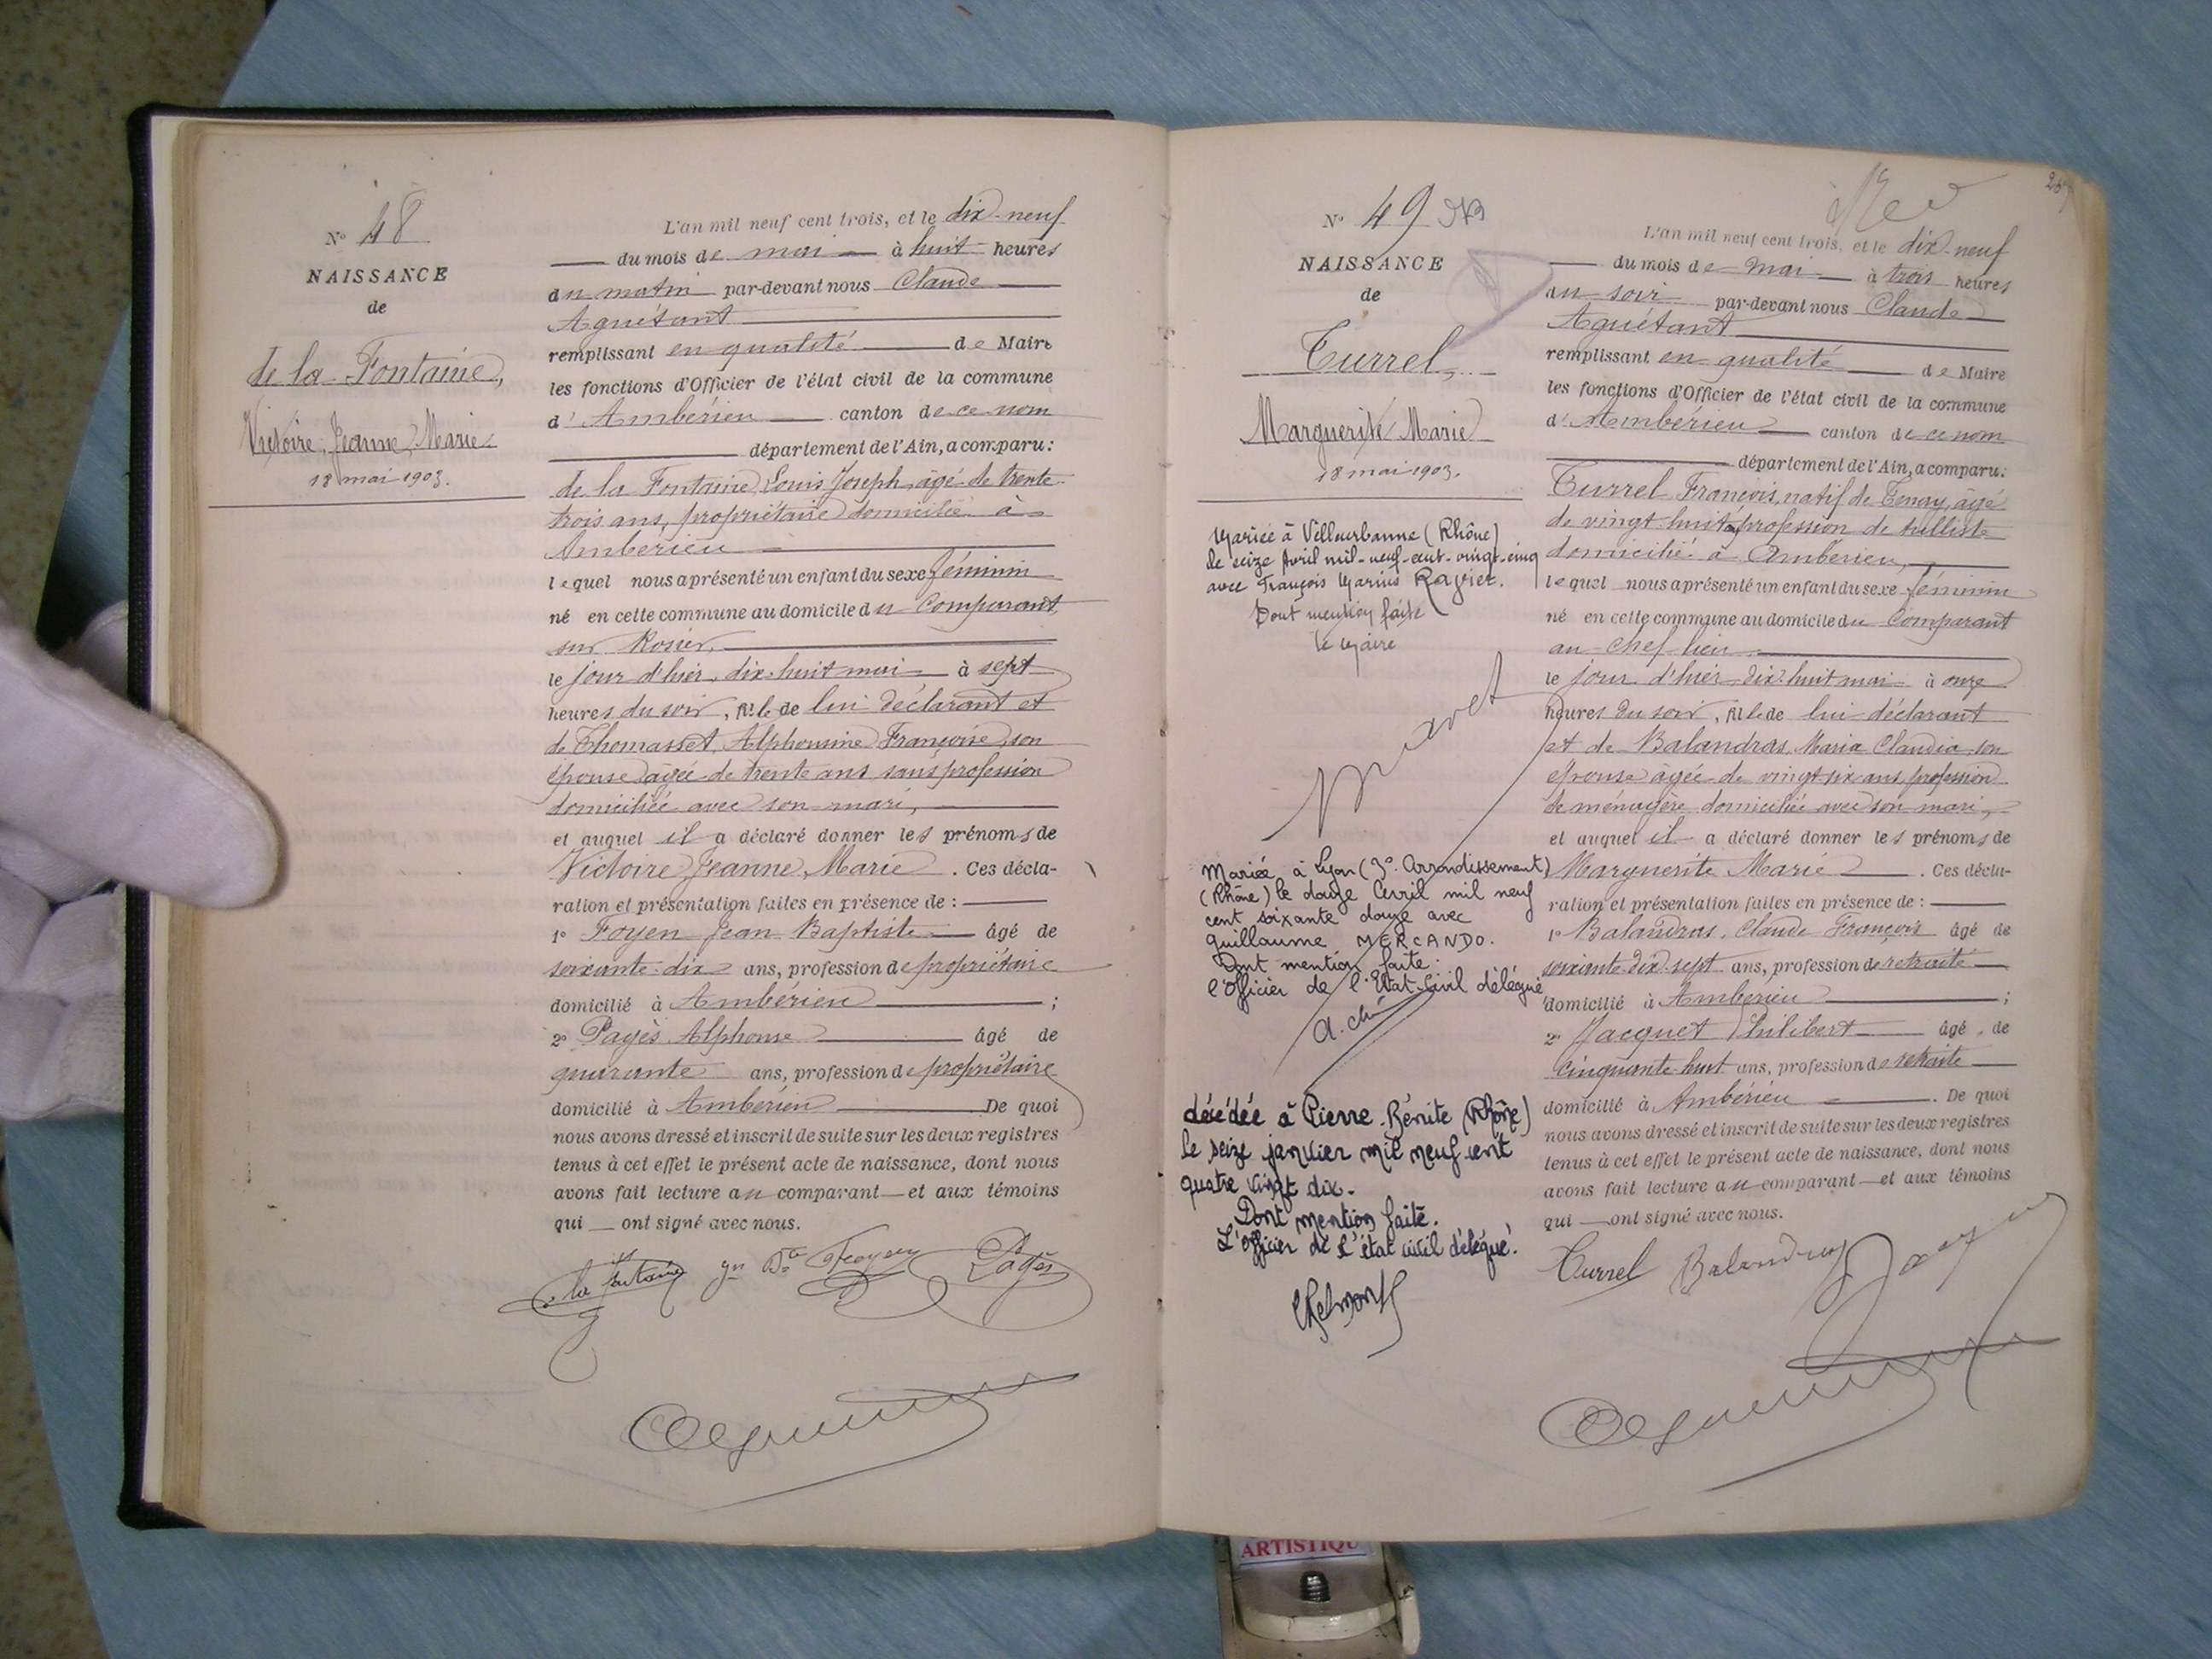 N° 48
NAISSANCE
de
de la Fontaine,
Victoire, Jeanne, Marie
18 mai 1903.
L'an mil neuf cent trois, et le dix-neuf
du mois de mai à huit heures
du matin par-devant nous Claude
Aguétant
remplissant en qualité de Maire
les fonctions d'Officier de l'état civil de la commune
d'Ambérieu canton de ce nom
département de l'Ain, a comparu:
de la Fontaine, Louis Joseph, âgé de trente-
trois ans, propriétaire domicilié à
Ambérieu
lequel nous a présenté un enfant du sexe féminin
né en cette commune au domicile du Comparant
sur Rosier,
le jour d'hier, dix-huit mai à sept
heures du soir, fille de lui déclarant et
de Thomasset, Alphonsine Françoise, son
épouse âgée de trente ans sans profession
domiciliée avec son mari,
et auquel il a déclaré donner les prénoms de
Victoire, Jeanne, Marie. Ces décla-
ration et présentation faites en présence de :
1° Foyen Jean Baptiste âgé de
soixante-dix ans, profession de propriétaire
domicilié à Ambérieu ;
2° Pagès Alphonse âgé de
quarante ans, profession de propriétaire
domicilié à Ambérieu De quoi
nous avons dressé et inscrit de suite sur les deux registres
tenus à cet effet le présent acte de naissance, dont nous
avons fait lecture au comparant et aux témoins
qui ont signé avec nous.
de la Fontaine Jn Bte Foyen Pagès
N° 49
NAISSANCE
de
Turrel,
Marguerite Marie
18 mai 1903.
Mariée à Villeurbanne (Rhône)
le seize Avril mil-neuf-cent-vingt-cinq
avec François Marius Ravier.
Dont mention faite
le Maire
Mariée à Lyon (3e Arrondissement)
(Rhône) le douze Avril mil neuf
cent soixante douze avec
Guillaume MERCANDO.
Dont mention faite.
l'Officier de l'Etat-Civil délégué
décédée à Pierre-Bénite (Rhône)
le seize janvier mil neuf cent
quatre vingt dix.
Dont mention faite.
L'officier de l'état civil délégué.
L'an mil neuf cent trois, et le dix-neuf
du mois de mai à trois heures
du soir par-devant nous Claude
Aguétant
remplissant en qualité de Maire
les fonctions d'Officier de l'état civil de la commune
d'Ambérieu canton de ce nom
département de l'Ain, a comparu:
Turrel François, natif de Tenay, âgé
de vingt-huit a, profession de tulliste
domicilié à Ambérieu,
lequel nous a présenté un enfant du sexe féminin
né en cette commune au domicile du Comparant
au chef-lieu
le jour d'hier dix-huit mai à onze
heures du soir, fille de lui déclarant
et de Balandras, Maria Claudia, son
épouse âgée de vingt six ans, profession
de ménagère domiciliée avec son mari,
et auquel il a déclaré donner les prénoms de
Marguerite Marie. Ces décla-
ration et présentation faites en présence de :
1° Balandras, Claude François âgé de
soixante-dix-sept ans, profession de retraité
domicilié à Ambérieu ;
2° Jacquet Philibert âgé de
cinquante-huit ans, profession de retraité
domicilié à Ambérieu. De quoi
nous avons dressé et inscrit de suite sur les deux registres
tenus à cet effet le présent acte de naissance, dont nous
avons fait lecture au comparant et aux témoins
qui ont signé avec nous.
Turrel Balandras
ARTISTIQU